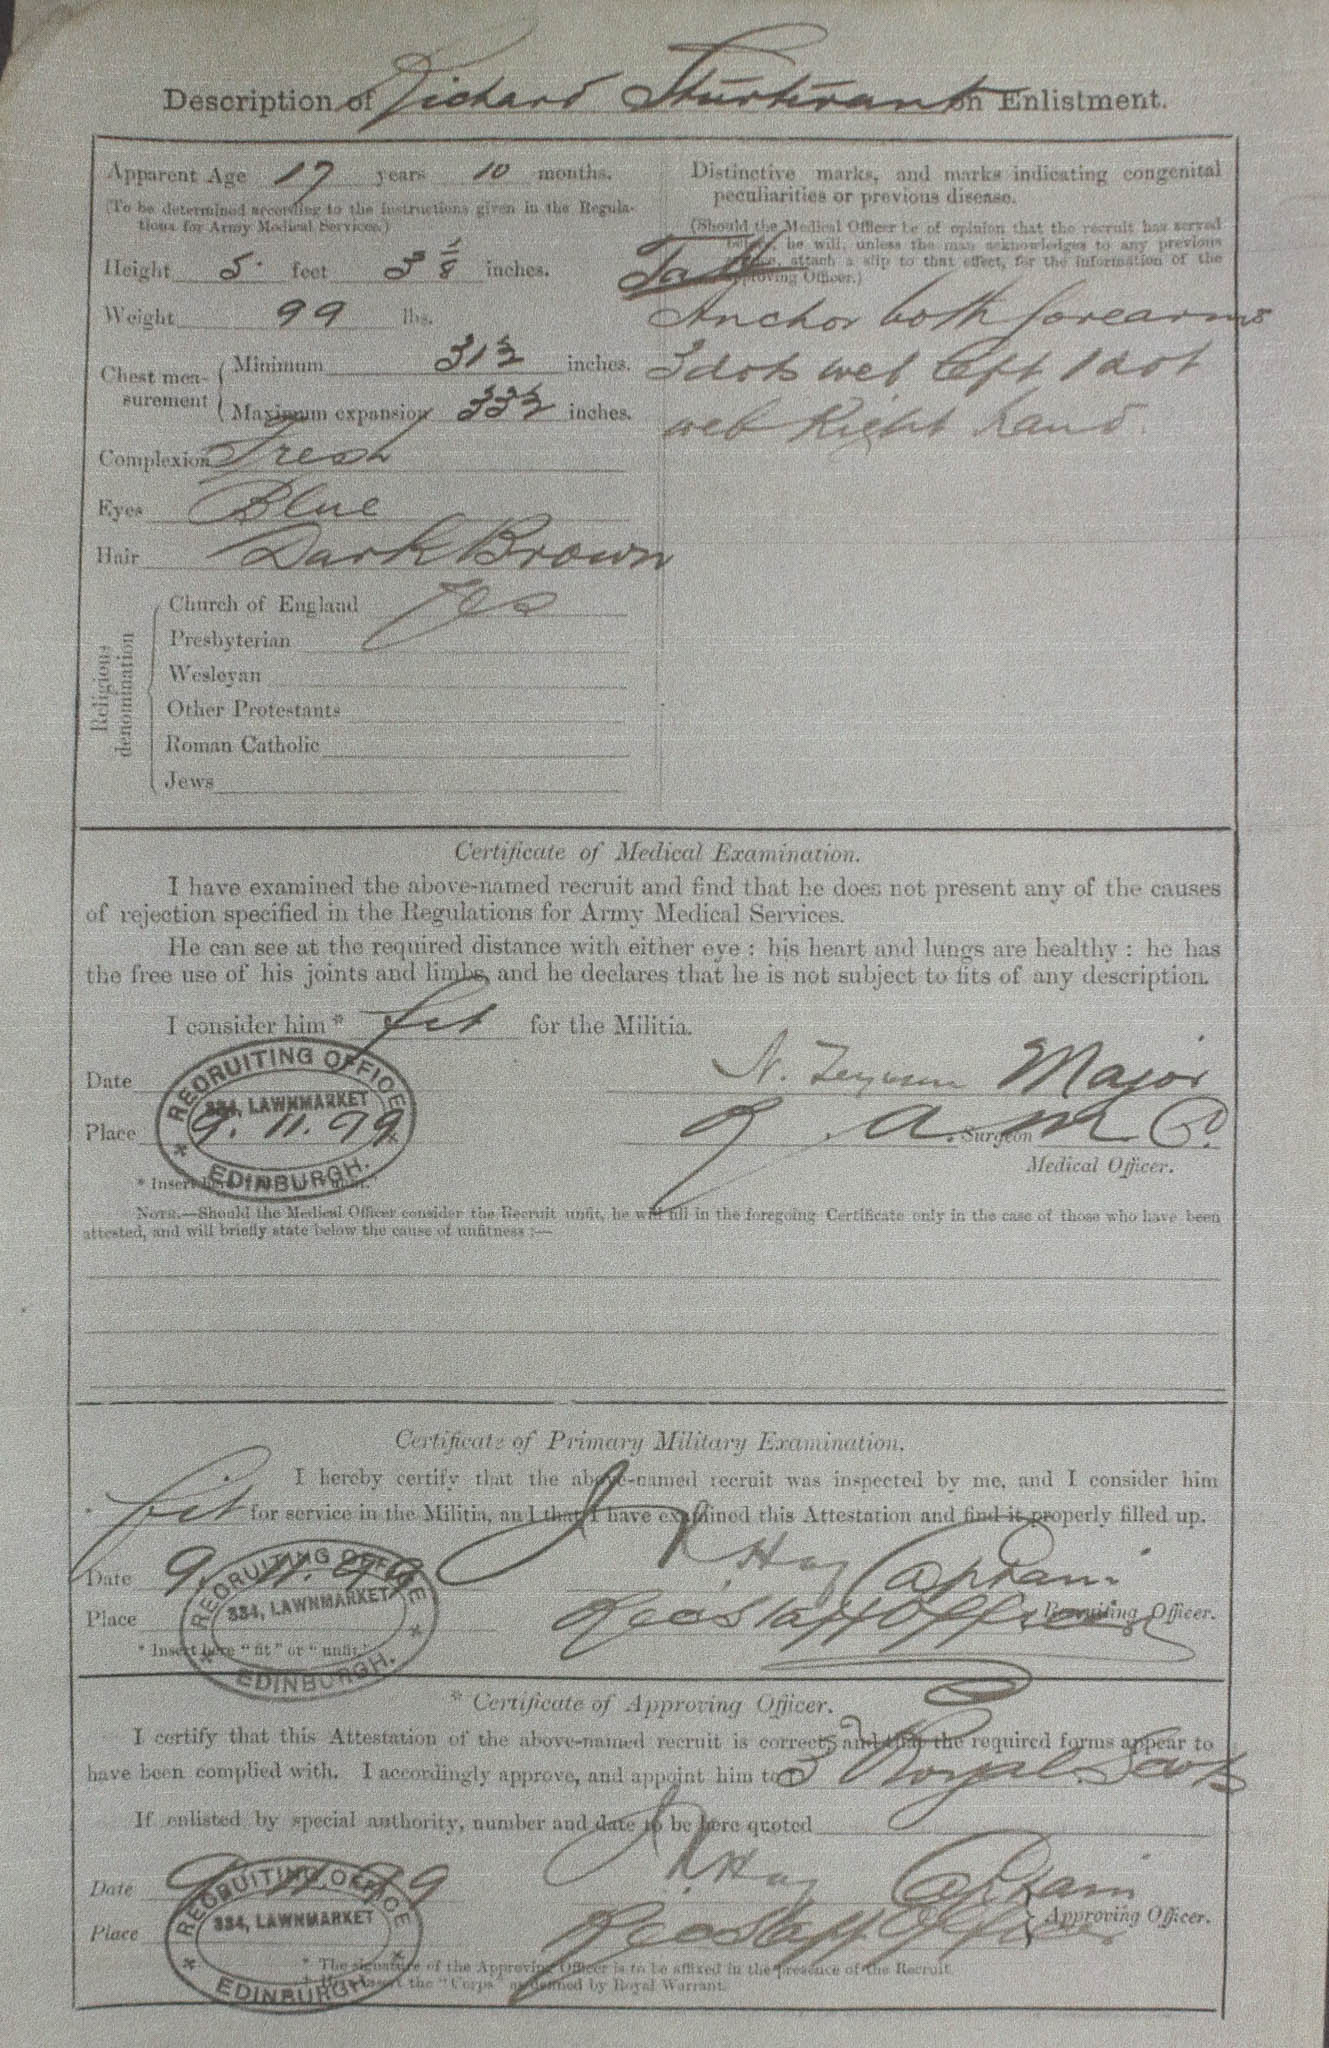 Description of Richard Sturtivant on Enlistment.
Apparent Age 17 years 10 months.
(To be determined according to the instructions given in the Regula-
tions for Army Medical Services.)
Height 5 feet 3 1/8 inches.
Weight 99 lbs.
Chest mea-
surement
Minimum 31 1/2 inches.
Maximum expansion 33 1/2 inches.
Complexion Fresh
Eyes Blue
Hair Dark Brown
Religious
denomination
Church of England Yes
Presbyterian
Wesleyan
Other Protestants
Roman Catholic
Jews
Distinctive marks, and marks indicating congenital
peculiarities or previous disease.
(Should the Medical Officer be of opinion that the recruit has served
before, he will, unless the man acknowledges to any previous
service, attach a slip to that effect, for the information of the
Approving Officer.)
Tatt
Anchor both forearms
3 dots web left 1 dot
web Right hand.
Certificate of Medical Examination.
I have examined the above-named recruit and find that he does not present any of the causes
of rejection specified in the Regulations for Army Medical Services.
He can see at the required distance with either eye : his heart and lungs are healthy : he has
the free use of his joints and limbs, and he declares that he is not subject to fits of any description.
I consider him * fit for the Militia.
Date
Place
RECRUITING OFFICE
334, LAWNMARKET
9. 11. 99
EDINBURGH.
N. Major
R. A. M. C.
Surgeon
Medical Officer.
* Insert here
NOTE.—Should the Medical Officer consider the Recruit unfit, he will fill in the foregoing Certificate only in the case of those who have been
attested, and will briefly state below the cause of unfitness :—
Certificate of Primary Military Examination.
I hereby certify that the above-named recruit was inspected by me, and I consider him
* fit for service in the Militia, and that I have examined this Attestation and find it properly filled up.
Date 9. 11. 99
Place
RECRUITING OFFICE
334, LAWNMARKET
EDINBURGH.
Hay Captain
Rec Staff Officer
Recruiting Officer.
* Insert here "fit" or "unfit."
* Certificate of Approving Officer.
I certify that this Attestation of the above-named recruit is correct, and that the required forms appear to
have been complied with. I accordingly approve, and appoint him to 3 Royal Scots
If enlisted by special authority, number and date to be here quoted
Date 9. 11. 99
Place
RECRUITING OFFICE
334, LAWNMARKET
EDINBURGH.
Hay Captain
Rec Staff Officer
Approving Officer.
* The signature of the Approving Officer is to be affixed in the presence of the Recruit.
† Here insert the "Corps" as defined by Royal Warrant.